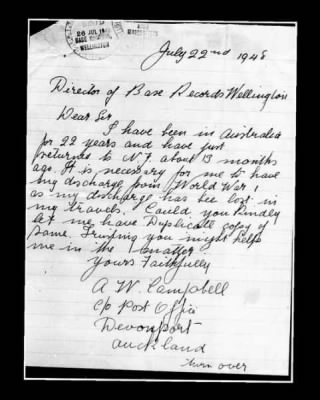 26 JUL 19
BASE RECORDS
WELLINGTON
July 22nd 1948
Director of Base Records Wellington
Dear Sir
I have been in Australia
for 22 years and have just
returned to N.Z. about 13 months
ago. It is necessary for me to have
my discharge from World War 1
as my discharge has bee lost in
my travels. Could you kindly
let me have Duplicate copy of
same. Trusting you might help
me in the matter
Yours Faithfully
A W Campbell
c/o Post Office
Devonport
Auckland
turn over